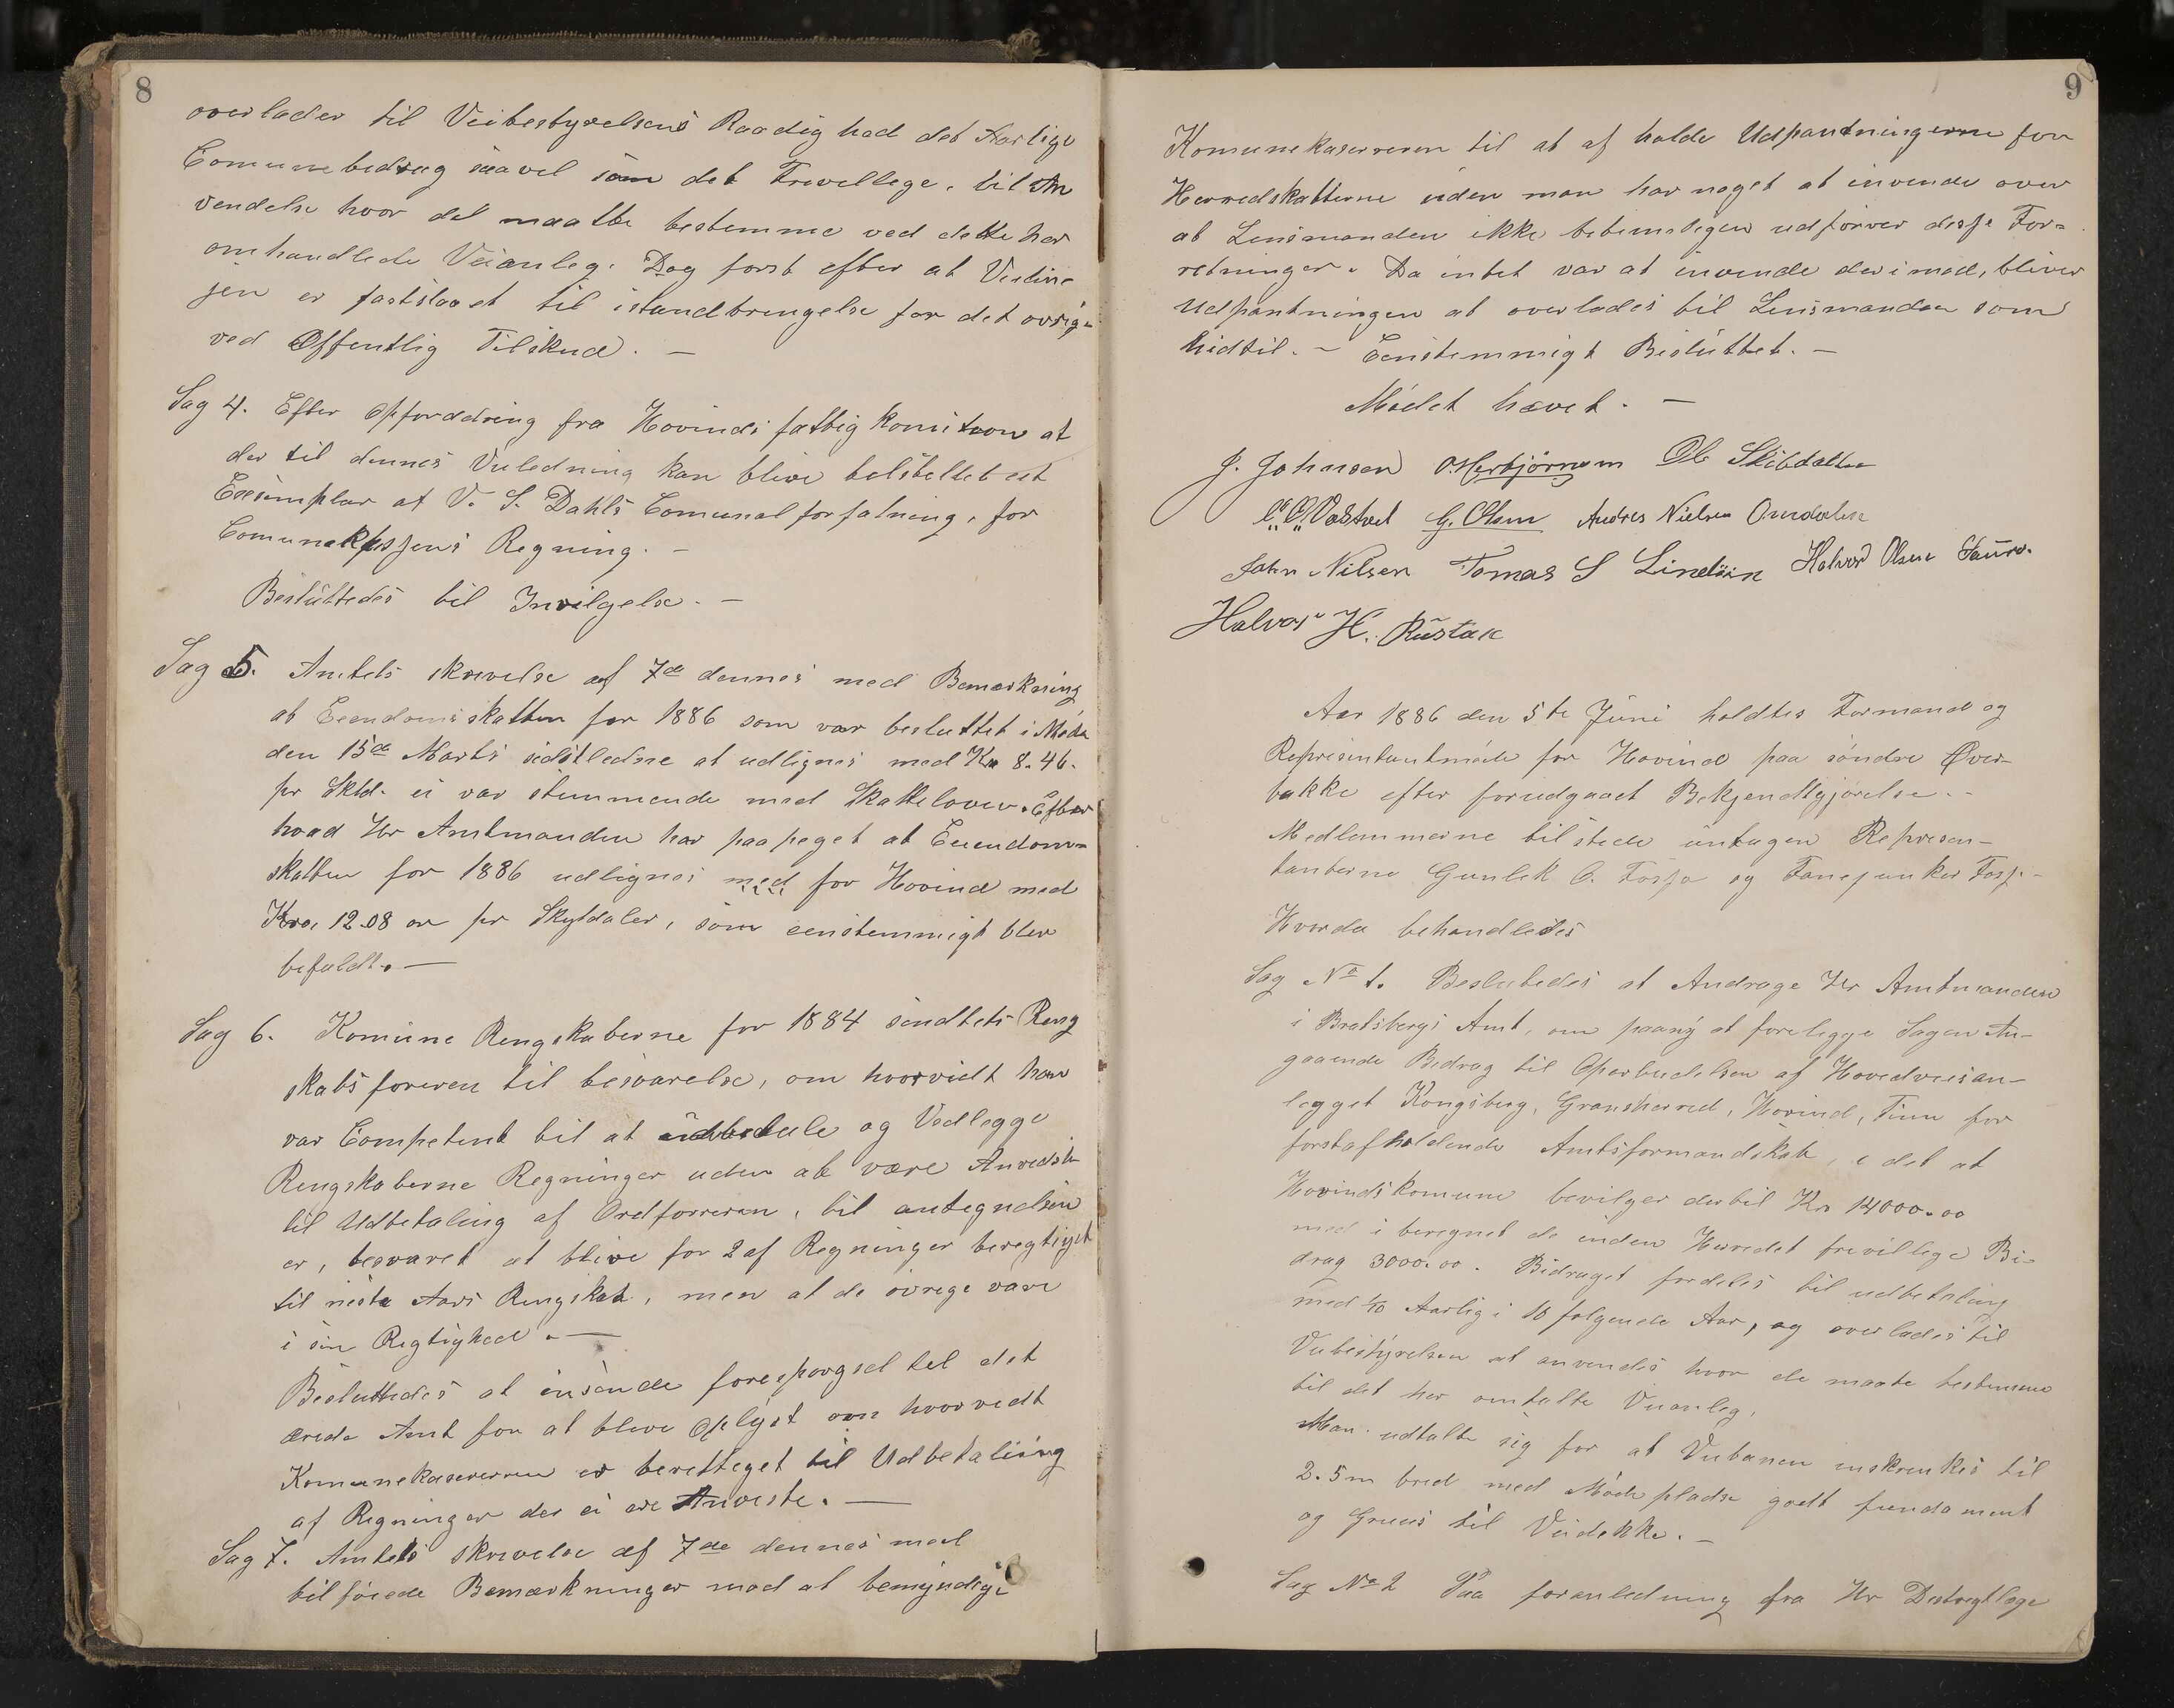 8
overlader til Veibestyrelsens Raadighed det Aarlige
Comunebedrag saavel som det Frevellege, til An
vendelse hvor det maatte bestemme ved dette her
omhandlede Veianleg. Dog først efter at Veilin-
jen er fastslaaet til istandbringelse for det øvrige
ved Offentlig Tilskud. —
Sag 4. Efter Opforddring fra Hovinds fattig komition at
der til dennes Veiledning kan blive bestellet et
Exsemplar af V. S. Dahls Comunal forfatning, for
Comunekassens Regning. —
Besluttedes til Invilgelse. —
Sag 5. Amtets skrivelse af 7de dennes med Bemærkning
at Eiendomsskatten for 1886 som var besluttet i Møde
den 15de Marts sidstledne at udlignes med Kr 8.46.
pr Skld. ei var stemmende med Skatteloven. Efter
hvad Hr Amtmanden har paapeget at Eiendoms-
skatten for 1886 udlignes med for Hovind med
Kro. 12.08 ør pr Skyldaler, som eenstemmigt blev
befuldt. —
Sag 6. Komune Rengskaberne for 1884 sendtets Reng
skabsføreren til besvarelse, om hvorvidt han
var Competent til at udbetale og Vedlegge
Rengskaberne Regninger uden at være Anvedste
til Udbetaling af Ordførreren, til antegnelsen
er, besvaret at blive for 2 af Regninger beregtiget
til neste Aars Rengskab, men at de øvrige vare
i sin Regtighed. —
Besluttedes at insende forespørgsel tel det
ærede Amt for at bleve oplyst om hvorvedt
Komunekasereren er berettiget til Udbetaling
af Regninger der ei ere Anveste. —
Sag 7. Amtets skrivelse af 7de dennes med
tilføiede Bemærkninger mod at bemyndige
9
Komunekasereren til at af holde Udpantningerne for
Herredskatterne uden man har noget at invende over
at Lensmanden ikke betimeligen udfører disse For-
retninger. Da intet var at invende der imod, bliver
Udpantningen at overlades til Lensmanden som
hidtil. – Eenstemmigt Besluttet. —
Mødet hævet. —
J. Johnsen O. Herbjørnsen Ole Skibdalen
G. Olsen Andres Nielsen
John Nilsen Tomas S Halvor Olsen
Halvor H. Rustak
Aar 1886 den 5te Juni holdtes Formand og
Represintantmøde for Hovind paa søndre Øver-
bakke efter forudgaaet Bekjendtgjørelse. -
Medlemmerne tilstede untagen Represen-
tanterne Gunlek O. Fosso og
Hvorda behandledes
Sag No 1. Beslutedes at Andrage Hr Amtmanden
i Bratsbergs Amt, om paany at forelegge Sagen An-
gaaende Bedrag til Oparbeidelsen af Hovedveisan-
legget Kongsberg, Gransherred, Hovind, Tinn for
førstafholdende Amtsformandskab, i det at
Hovinds komune bevilger dertil Kr 14000.00
med i beregnet de inden Herredet frivillege Bi-
drag 3000.00. Bidraget fordeles til udbetaling
med 1/10 Aarlig i 10 følgende Aar, og overlades til
Veibestyrelsen at anvendes hvor de maate bestemme
til det her omtalte Veianleg.
Man udtalte sig for at Veibanen inskrenkes til
2.5m bred med Mødepladse godt fundament
og Gruus til Veidekke. —
Sag No 2 Paa foranledning fra Hr Destregtlæge